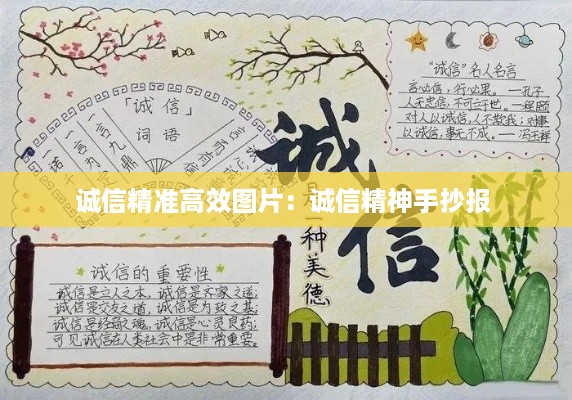 “诚信”名人名言
言必信，行必果。—孔子
人无忠信，不可立于世。—程颐
对人以诚信，人不欺我；对事
以诚信，事无不成。—冯玉祥
「诚信」
词语
一诺
一言为
一言九鼎
言而有信
诚信
是一种美德
诚信精准高效图片：诚信精神手抄报
诚信的重要性
诚信是立人之本，诚信是齐家之道；
诚信是交友之道，诚信是为政之基；
诚信是经商之魂，诚信是心灵良药；
可见诚信在人类社会中是非常重要。